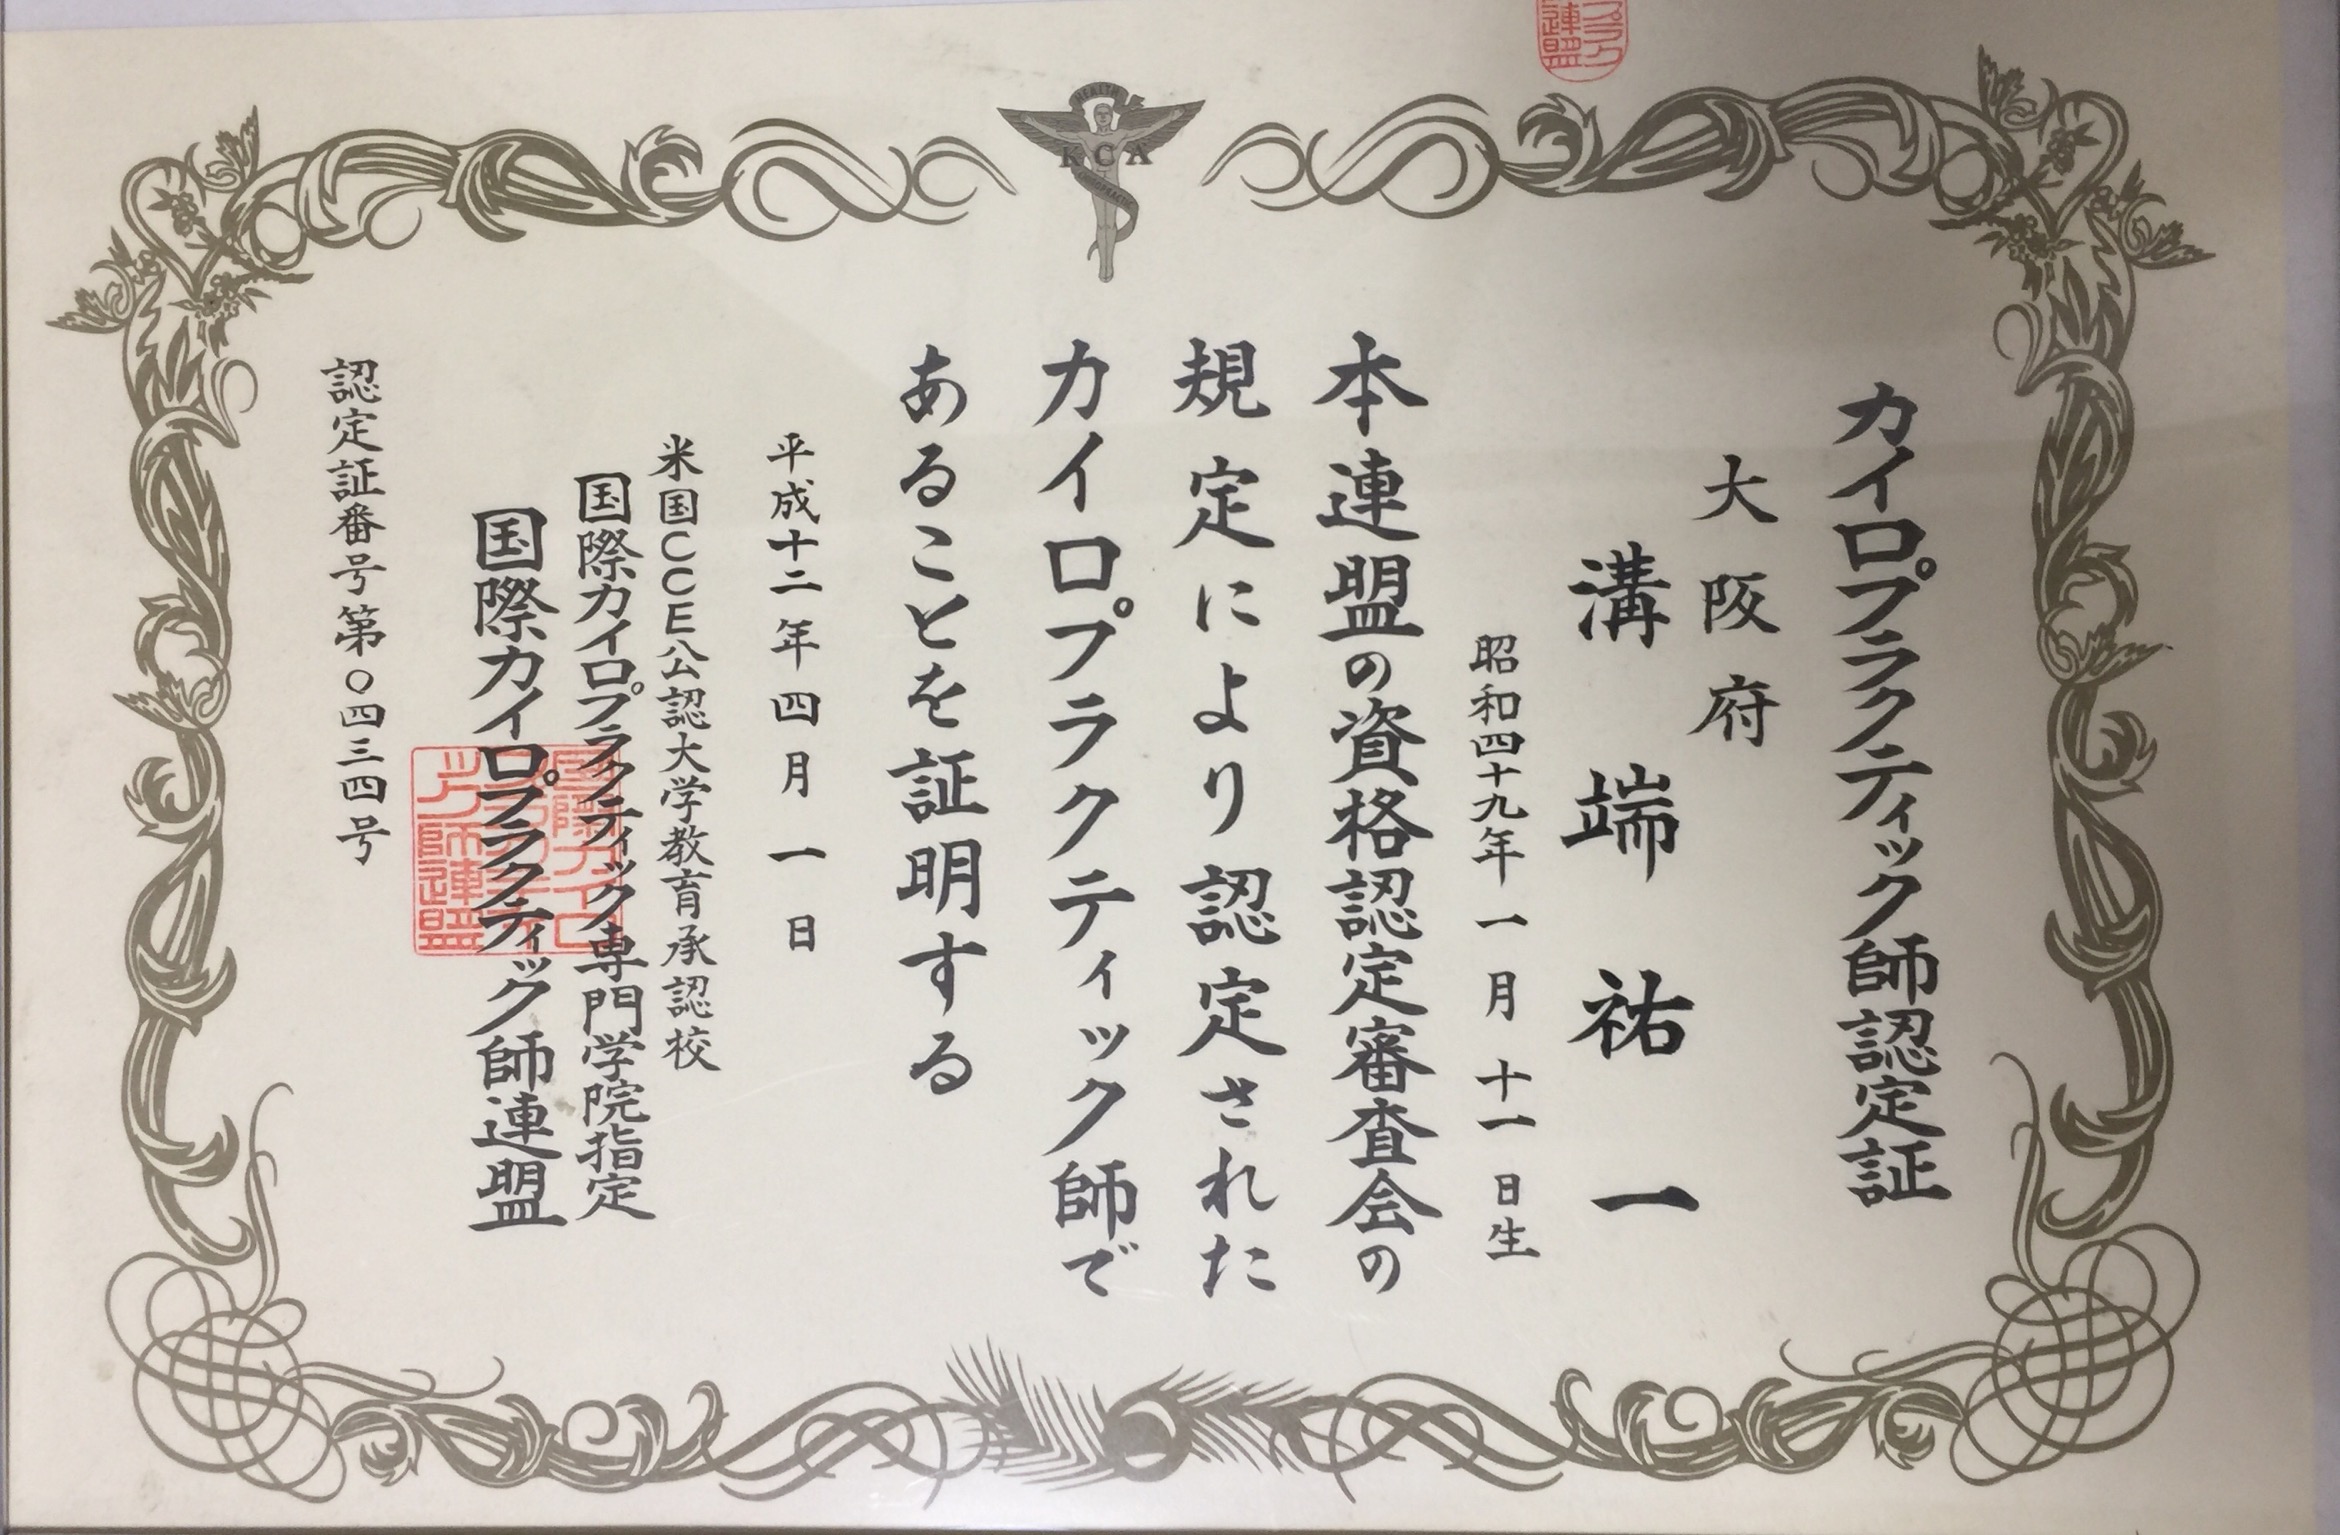 カイロプラクティック師認定証
大阪府
溝端祐一
昭和四十九年一月十一日生
本連盟の資格認定審査会の
規定により認定された
カイロプラクティック師で
あることを証明する
平成十二年四月一日
米国CCE公認大学教育承認校
国際カイロプラクティック専門学院指定
国際カイロプラクティック師連盟
認定証番号第〇四三四号
HEALTH
KCA
CHIROPRACTIC
国際カイロ
プラクティ
ック師連盟
プラク
連盟